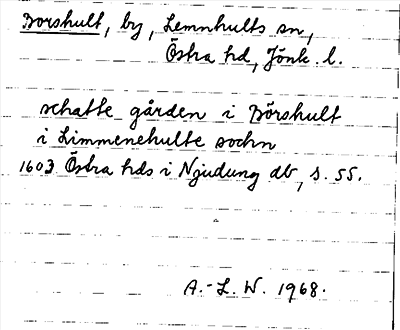 Borshult, by, Lemnhults sn,
Östra hd, Jönk. l.
schatte gården i Börshult
i Limmenehulte sochn
1603 Östra hds i Njudung db, s. 55.
A.-L. W. 1968.